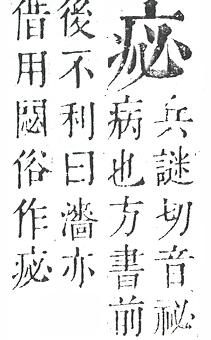 兵謎切音祕
病也方書前
後不利曰濇亦
借用閟俗作